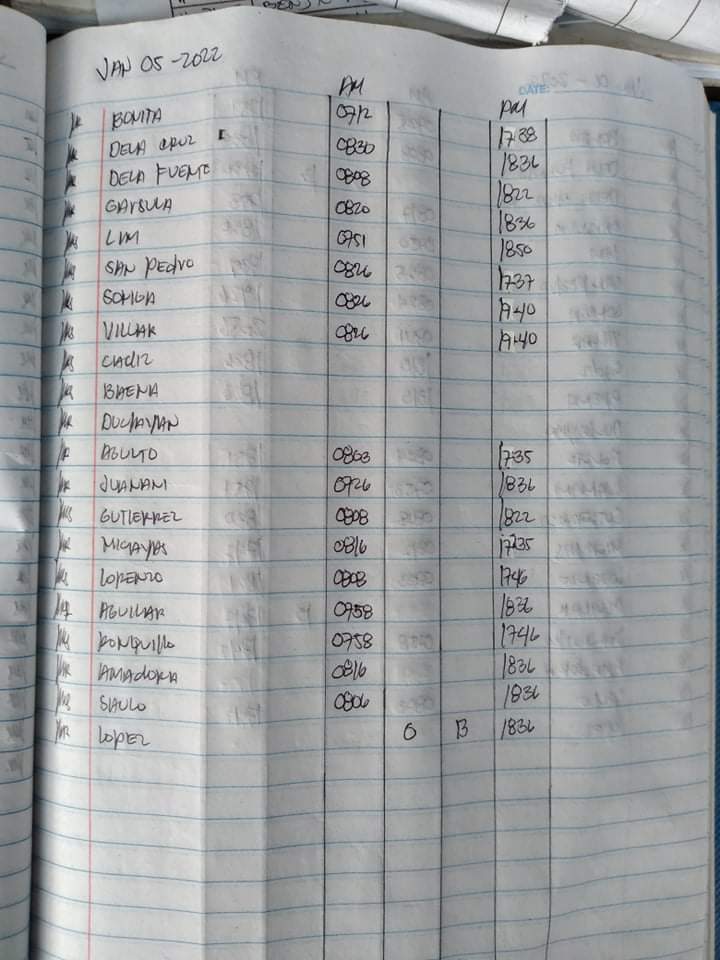 JAN 05 - 2022
DATE:
AM PM
MR BONITA 0712 1738
MR DELA CRUZ 0830 1836
MR DELA FUENTE 0808 1822
MR GAYSULA 0820 1836
MS LIM 0751 1850
MR SAN PEDRO 0826 1737
MS 0826 1740
MR VILLAR 0826 1740
MS CADIZ
MS BAENA
MR
MR AGULTO 0803 1735
MR JUANANI 0726 1836
MS GUTIERREZ 0808 1822
MR MIGAYAS 0816 1735
MS LORENZO 0808 1746
MR AGUILLAR 0758 1836
MS RONQUILLO 0758 1746
MR AMADORA 0816 1836
MS SAULO 0806 1836
MR LOPEZ O B 1836